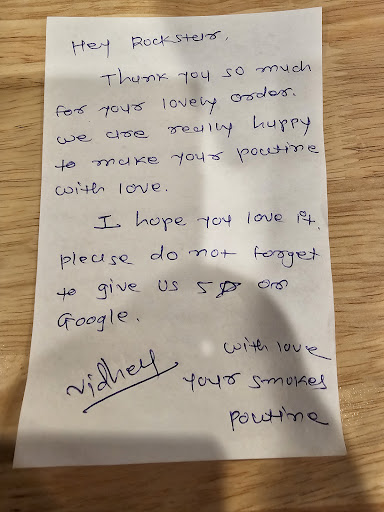 Hey Rockster,
Thank you so much
for your lovely order.
we are really happy
to make your poutine
with love.
I hope you love it.
please do not forget
to give us 5 on
Google.
with love
vidhey your smokes
poutine